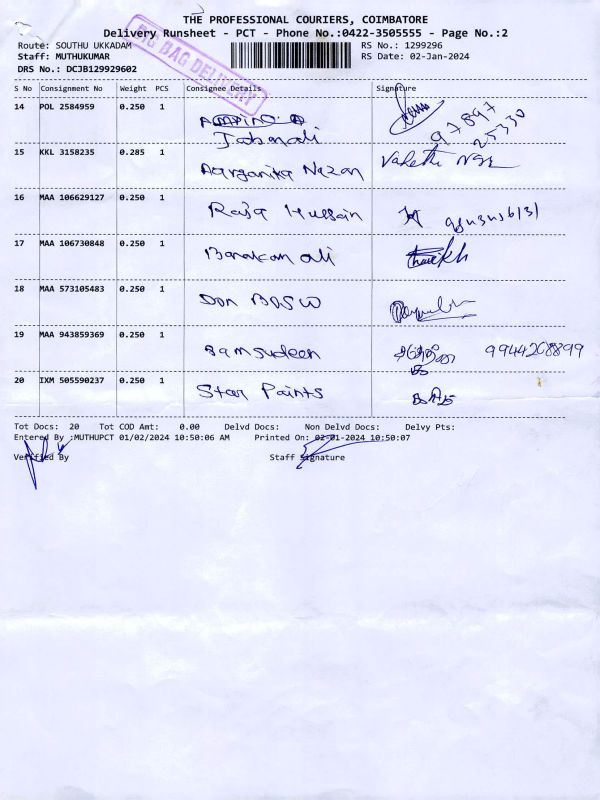 THE PROFESSIONAL COURIERS, COIMBATORE
Delivery Runsheet - PCT - Phone No.:0422-3505555 - Page No.:2
Route: SOUTHU UKKADAM RS No.: 1299296
Staff: MUTHUKUMAR RS Date: 02-Jan-2024
DRS No.: DCJB129929602
BIG BAG DELIVERY
S No Consignment No Weight PCS Consignee Details Signature
14 POL 2584959 0.250 1
97897
25330
15 KKL 3158235 0.285 1
16 MAA 106629127 0.250 1 Raja Hussain
17 MAA 106730848 0.250 1 Barakam ali
18 MAA 573105483 0.250 1 DON BOSW
19 MAA 943859369 0.250 1 Samsudeen 9944208899
20 IXM 505590237 0.250 1 Star Paints
Tot Docs: 20 Tot COD Amt: 0.00 Delvd Docs: Non Delvd Docs: Delvy Pts:
Entered By :MUTHUPCT 01/02/2024 10:50:06 AM Printed On: 02-01-2024 10:50:07
Verified By Staff Signature